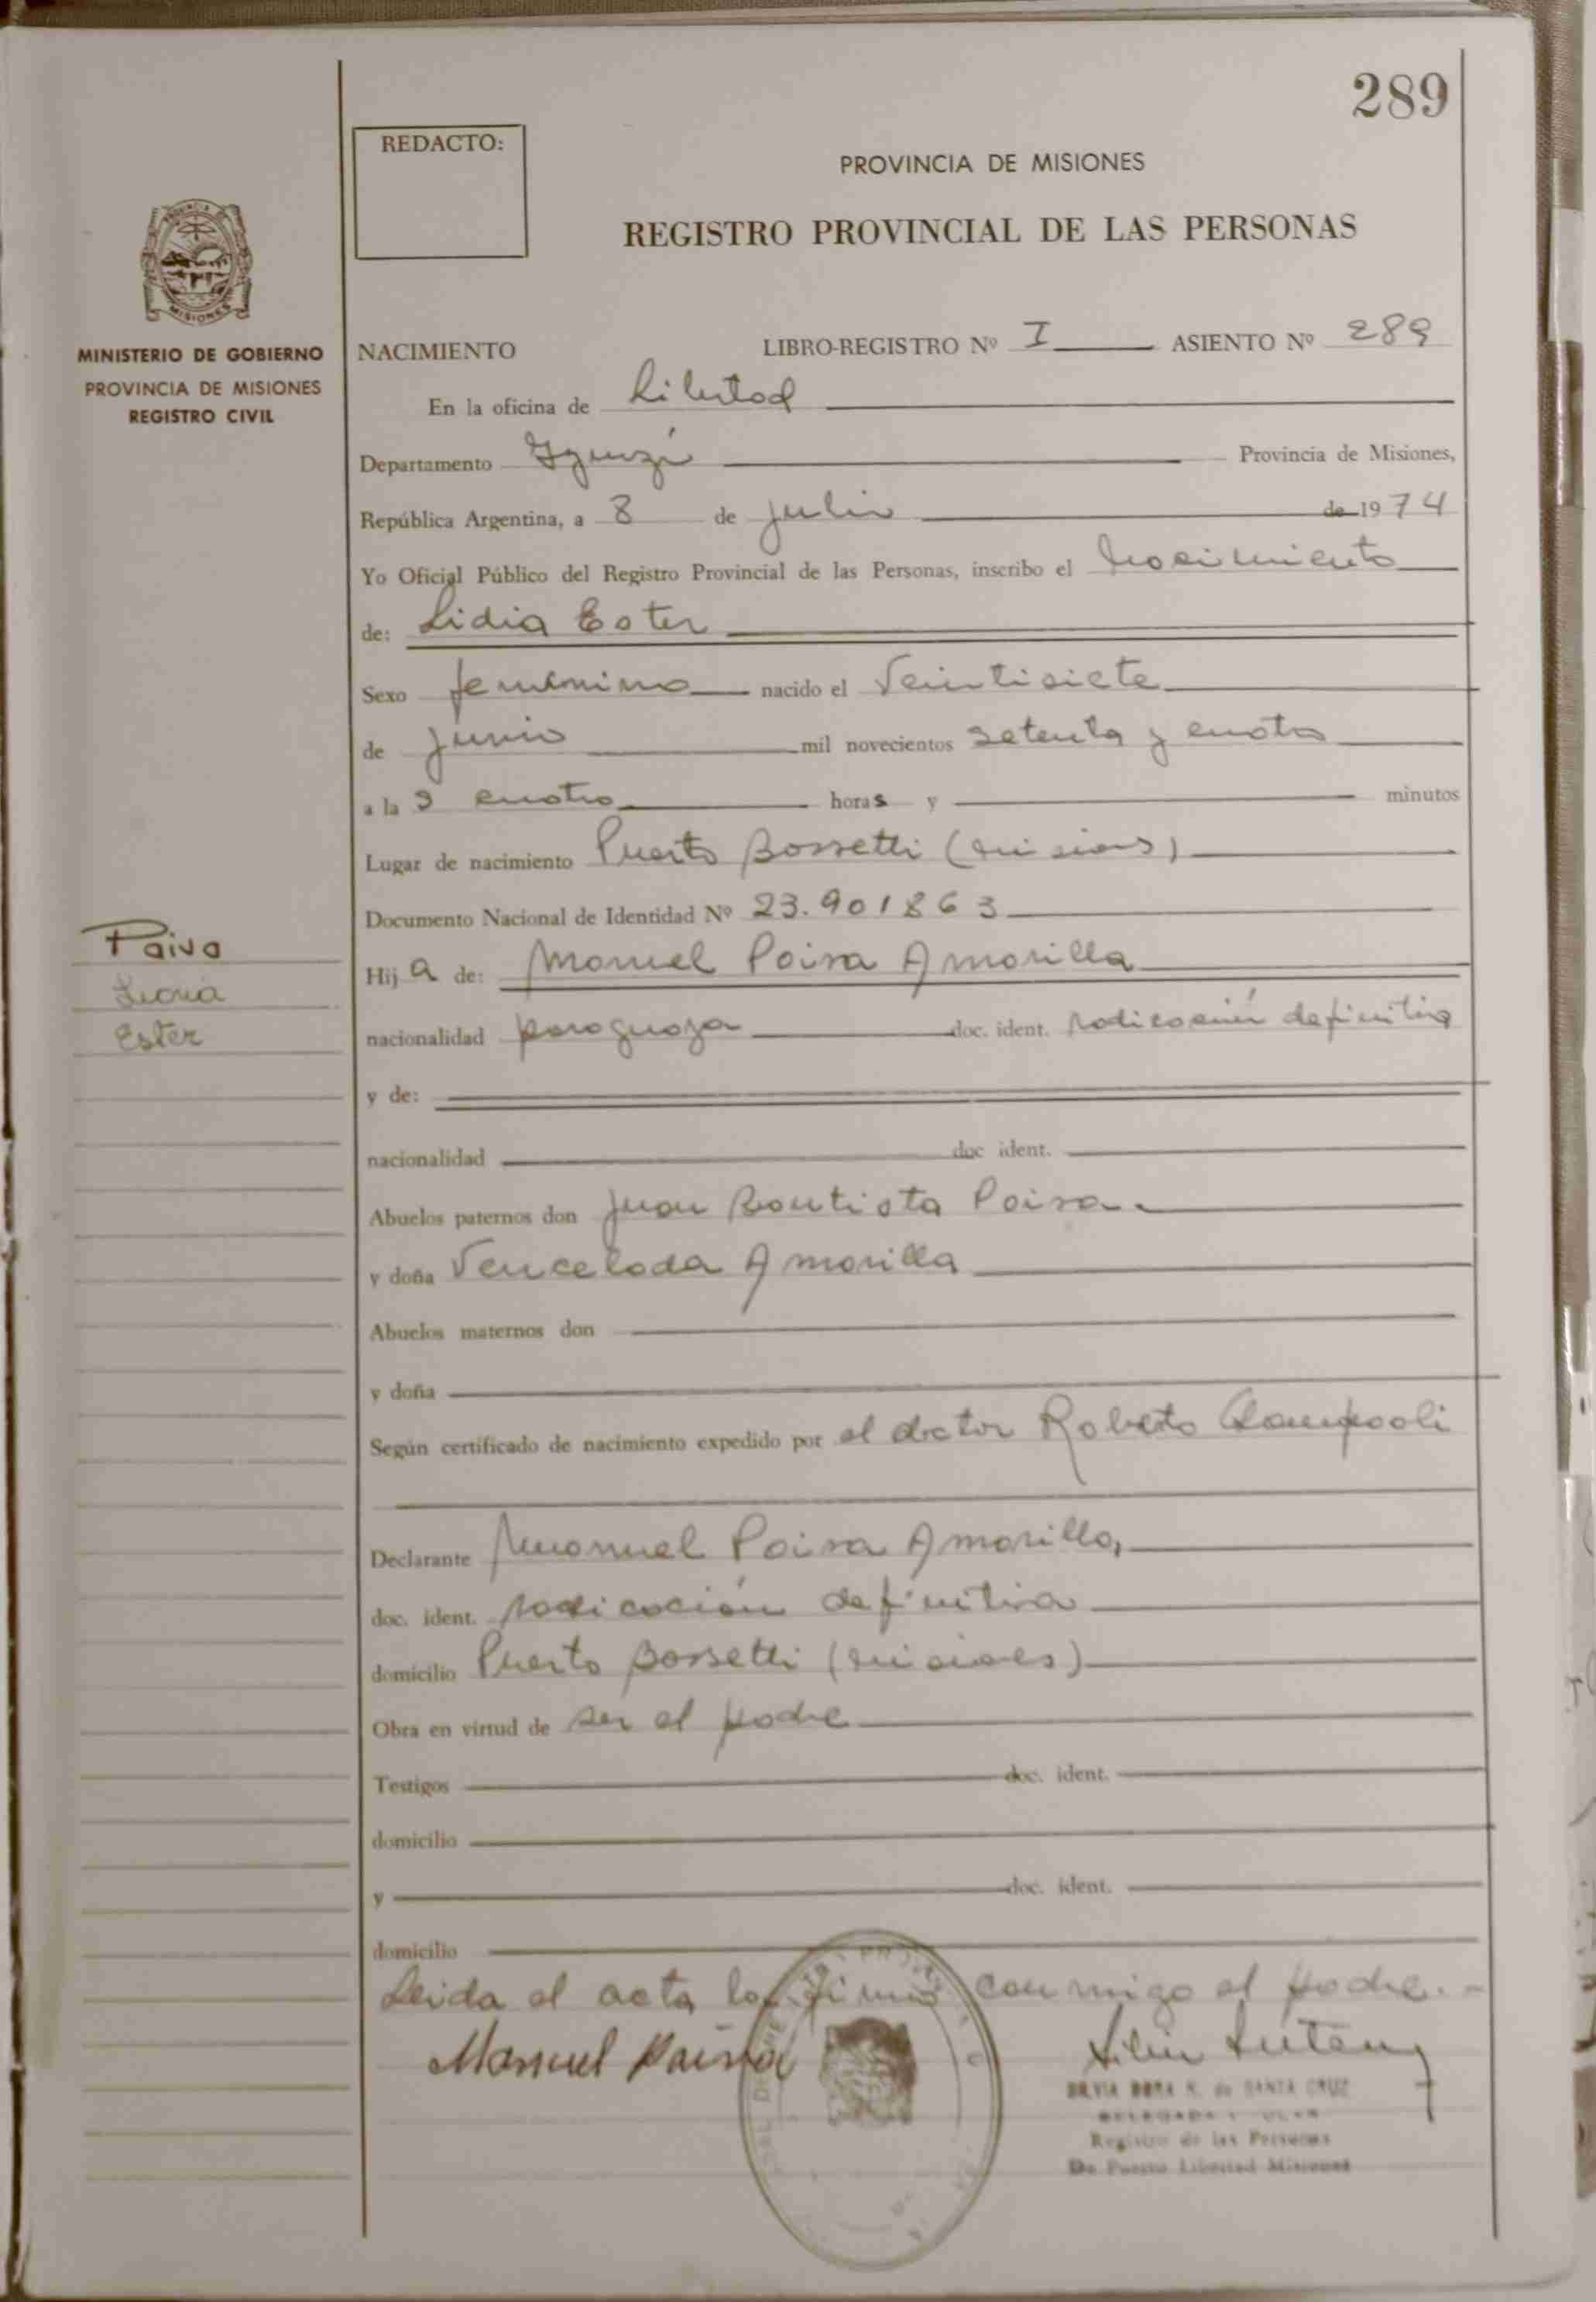 289
REDACTO:
PROVINCIA DE MISIONES
REGISTRO PROVINCIAL DE LAS PERSONAS
MISIONES
MINISTERIO DE GOBIERNO
PROVINCIA DE MISIONES
REGISTRO CIVIL
NACIMIENTO LIBRO-REGISTRO Nº I ASIENTO Nº 289
En la oficina de Libertad
Departamento Iguazú Provincia de Misiones,
República Argentina, a 8 de julio de 1974
Yo Oficial Público del Registro Provincial de las Personas, inscribo el nacimiento
de: Lidia Ester
Sexo femenino nacido el veintisiete
de junio mil novecientos setenta y cuatro
a la s cuatro horas y minutos
Lugar de nacimiento Puerto Bossetti (Misiones)
Documento Nacional de Identidad Nº 23.901863
Paiva
Ester
Hija de: Manuel Paiva Amarilla
nacionalidad paraguaya doc. ident. radicación definitiva
y de:
nacionalidad doc ident.
Abuelos paternos don Juan Bautista Paiva
y doña Vencelada Amarilla
Abuelos maternos don
y doña
Según certificado de nacimiento expedido por el doctor Roberto
Declarante Manuel Paiva Amarilla,
doc. ident. radicación definitiva
domicilio Puerto Bossetti (Misiones)
Obra en virtud de ser el padre
Testigos doc. ident.
domicilio
y doc. ident.
domicilio
Leida el acta la firma conmigo el padre.-
Manuel Paiva
SILVIA DORA K. de SANTA CRUZ
Registro de las Personas
De Puerto Libertad Misiones